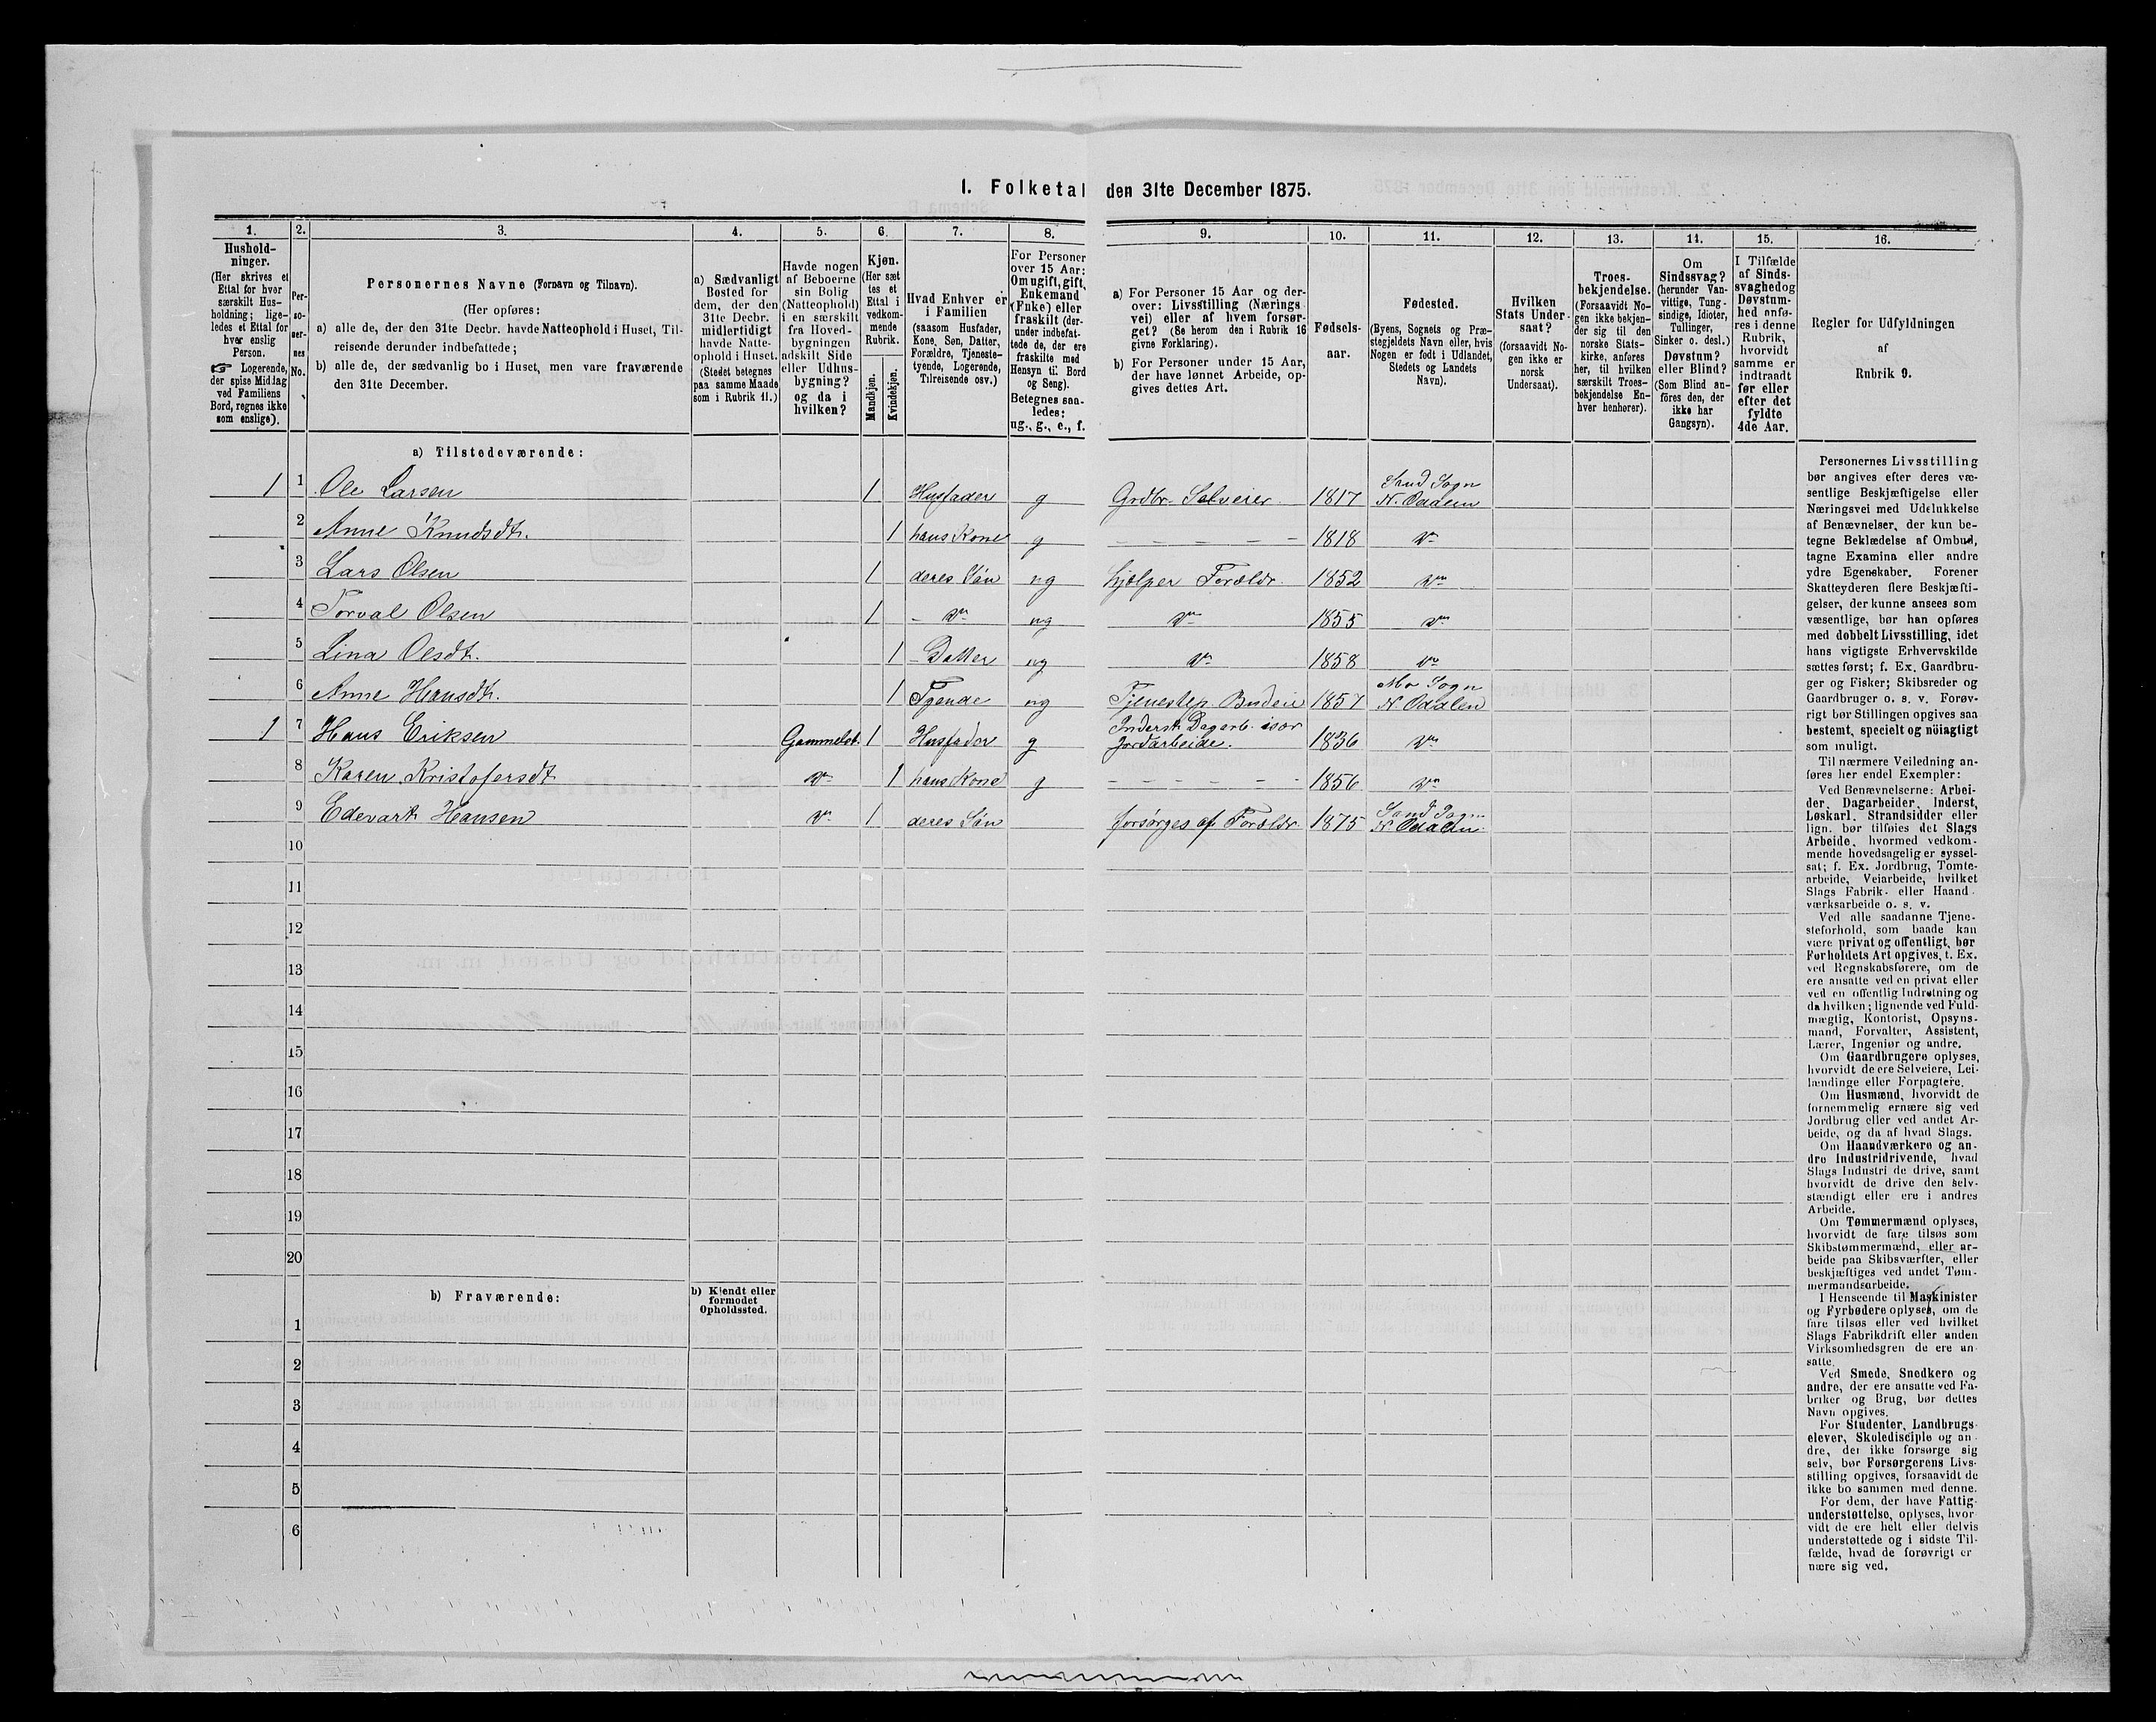 1. Folketal den 31te December 1875.
1.
2.
3.
4.
5.
6.
7.
8.
9.
10.
11.
12.
13.
14.
15.
16.
Hushold-
ninger.
(Her skrives et
Ettal for hver
særskilt Hus-
holdning; lige-
ledes et Ettal for
hver enslig
Person.
☞ Logerende,
der spise Middag
ved Familiens
Bord, regnes ikke
som enslige).
Per-
so-
ner-
nes
No.
Personernes Navne (Fornavn og Tilnavn).
(Her opføres:
a) alle de, der den 31te Decbr. havde Natteophold i Huset, Til-
reisende derunder indbefattede;
b) alle de, der sædvanlig bo i Huset, men vare fraværende
den 31te December.
a) Sædvanligt
Bosted for
dem, der den
31te Decbr.
midlertidigt
havde Natte-
ophold i Huset.
(Stedet betegnes
paa samme Maade
som i Rubrik 11.)
Havde nogen
af Beboerne
sin Bolig
(Natteophold)
i en særskilt
fra Hoved-
bygningen
adskilt Side
eller Udhus-
bygning?
og da i
hvilken?
Kjøn.
(Her sæt
tes et
Ettal i
vedkom-
mende
Rubrik.
Mandkjøn.
Kvindekjøn.
Hvad Enhver er
i Familien
(saasom Husfader,
Kone, Søn, Datter,
Forældre, Tjeneste-
tyende, Logerende,
Tilreisende osv.)
For Personer
over 15 Aar:
Om ugift, gift,
Enkemand
(Enke) eller
fraskilt (der-
under indbefat-
tede de, der ere
fraskilte med
Hensyn til Bord
og Seng).
Betegnes saa-
ledes:
ug., g., e., f.
a) For Personer 15 Aar og der-
over: Livsstilling (Nærings
vei) eller af hvem forsør-
get? (Se herom den i Rubrik 16
givne Forklaring).
b) For Personer under 15 Aar,
der have lønnet Arbeide, op-
gives dettes Art.
Fødsels-
aar.
Fødested.
(Byens, Sognets og Præ-
stegjeldets Navn eller, hvis
Nogen er født i Udlandet,
Stedets og Landets
Navn).
Hvilken
Stats Under-
saat?
(forsaavidt No-
gen ikke er
norsk
Undersaat).
Troes-
bekjendelse.
(Forsaavidt No-
gen ikke bekjen-
der sig til den
norske Stats-
kirke, anføres
her, til hvilken
særskilt Troes-
bekjendelse En-
hver henhører).
Om
Sindssvag?
(herunder Van-
vittige, Tung-
sindige, Idioter,
Tullinger,
Sinker o. desl.)
Døvstum?
eller Blind?
(Som Blind an-
føres den, der
ikke har
Gangsyn).
I Tilfælde
af Sinds-
svaghed og
Døvstum-
hed anfø-
res i denne
Rubrik,
hvorvidt
samme er
indtraadt
før eller
efter det
fyldte
4de Aar.
Regler for Udfyldningen
af
Rubrik 9.
a) Tilstedeværende:
1 1 Ole Larsen 1 Husfader g Grdbr. Selveier 1817 Sand Sogn
N. Odalen
2 Anne Knudsdt. 1 hans Kone g – – – – – 1818 do
3 Lars Olsen 1 deres Søn ug hjælper Forældr. 1852 do
4 Torval Olsen 1 – do ug do 1855 do
5 Lina Olsdt. 1 – Datter ug do 1858 do
6 Anne Hansdt. 1 Tyende ug Tjenestep. Budeie 1857 Mo Sogn
N. Odalen
1 7 Hans Eriksen Gammelst. 1 Husfader g Inderst Dagarb. især
Jordarbeide. 1836 do
8 Karen Kristofersdt. do 1 hans Kone g – – – – – 1856 do
9 Edevart Hansen do 1 deres Søn forsørges af Forældr. 1875 Sand Sogn
N. Odalen.
10
11
12
13
14
15
16
17
18
19
20
b) Fraværende:
b) Kjendt eller
formodet
Opholdssted.
1
2
3
4
5
6
Personernes Livsstilling
bør angives efter deres væ-
sentlige Beskjæftigelse eller
Næringsvei med Udelukkelse
af Benævnelser, der kun be-
tegne Beklædelse af Ombud,
tagne Examina eller andre
ydre Egenskaber. Forener
Skatteyderen flere Beskjæfti-
gelser, der kunne ansees som
væsentlige, bør han opføres
med dobbelt Livsstilling, idet
hans vigtigste Erhvervskilde
sættes først; f. Ex. Gaardbru-
ger og Fisker; Skibsreder og
Gaardbruger o. s. v. Forøv-
rigt bør Stillingen opgives saa
bestemt, specielt og nöiagtigt
som muligt.
Til nærmere Veiledning an-
føres her endel Exempler:
Ved Benævnelserne: Arbei-
der, Dagarbeider, Inderst,
Løskarl, Strandsidder eller
lign. bør tilføies det Slags
Arbeide, hvormed vedkom-
mende hovedsagelig er syssel-
sat; f. Ex. Jordbrug, Tomte-
arbeide, Veiarbeide, hvilket
Slags Fabrik- eller Haand-
værksarbeide o. s. v.
Ved alle saadanne Tjene-
steforhold, som baade kan
være privat og offentligt, bør
Forholdets Art opgives, t. Ex.
ved Regnskabsførere, om de
ere ansatte ved en privat eller
ved en offentlig Indretning og
da hvilken; lignende ved Fuld-
mægtig, Kontorist, Opsyns-
mand, Forvalter, Assistent,
Lærer, Ingeniør og andre.
Om Gaardbrugere oplyses,
hvorvidt de ere Selveiere, Lei-
lændinge eller Forpagtere.
Om Husmænd, hvorvidt de
fornemmelig ernære sig ved
Jordbrug eller ved andet Ar-
beide, og da af hvad Slags.
Om Haandværkere og an-
dre Industridrivende, hvad
Slags Industri de drive, samt
hvorvidt de drive den selv-
stændigt eller ere i andres
Arbeide.
Om Tømmermænd oplyses,
hvorvidt de fare tilsøs som
Skibstømmermænd, eller ar-
beide paa Skibsværfter, eller
beskjæftiges ved andet Tøm-
mermandsarbeide.
I Henseende til Maskinister
og Fyrbødere oplyses, om de
fare tilsøs eller ved hvilket
Slags Fabrikdrift eller anden
Virksomhedsgren de ere an-
satte.
Ved Smede, Snedkere og
andre, der ere ansatte ved Fa-
briker og Brug, bør dettes
Navn opgives.
For Studenter, Landbrugs-
elever, Skoledisciple og an-
dre, der ikke forsørge sig
selv, bør Forsørgerens Livs-
stilling opgives, forsaavidt de
ikke bo sammen med denne.
For dem, der have Fattig-
understøttelse, oplyses, hvor
vidt de ere helt eller delvis
understøttede og i sidste Til-
fælde, hvad de forøvrigt er
nære sig ved.